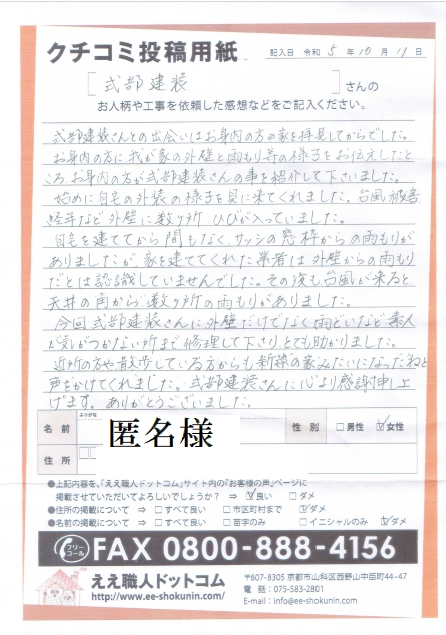 クチコミ投稿用紙
記入日 令和 5年 10月 11日
[ 式部建装 ]さんの
お人柄や工事を依頼した感想などをご記入ください。
式部建装さんとの出会いはお身内の方の家を拝見してからでした。
お身内の方に我が家の外壁と雨もり等の様子をお伝えしたと
ころお身内の方が式部建装さんの事を紹介して下さいました。
始めに自宅の外装の様子を見に来てくれました。台風被害
経年など外壁に数ヶ所ひびが入っていました。
自宅を建ててから間もなく、サッシの窓枠からの雨もりが
ありましたが、家を建ててくれた業者は外壁からの雨もり
だとは認識していませんでした。その後も台風が来ると
天井の角から数ヶ所の雨もりがありました。
今回式部建装さんに外壁だけでなく雨どいなど素人
が気がつかない所まで修理して下さりとても助かりました。
近所の方や散歩している方からも新築の家みたいになったねと
声をかけてくれました。式部建装さんに心より感謝申し上
げます。ありがとうございました。
ふりがな
名前 匿名様 性別 □男性 ☑女性
住所
●上記内容を、「ええ職人ドットコム」サイト内の「お客様の声」ページに
掲載させていただいてよろしいでしょうか? ⇒ ☑良い □ダメ
●住所の掲載について ⇒ □すべて良い □市区町村まで ☑ダメ
●名前の掲載について ⇒ □すべて良い □苗字のみ □イニシャルのみ ☑ダメ
フリーコール FAX 0800-888-4156
ええ職人ドットコム
http://www.ee-shokunin.com/
〒607-8305 京都市山科区西野山中臣町44-47
電話:075-583-2801
E-mail:info@ee-shokunin.com